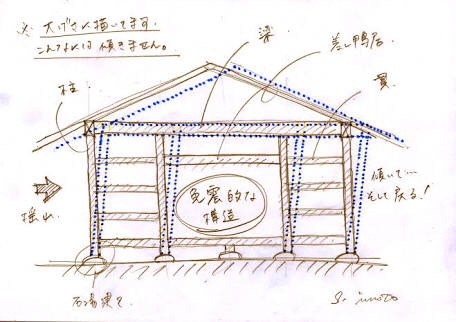 ※ 大げさに描いてます。
こんなには傾きません。
梁
差し鴨居
貫
柱
揺れ
免震的な
構造
傾いて…
そして戻る！
石場建て